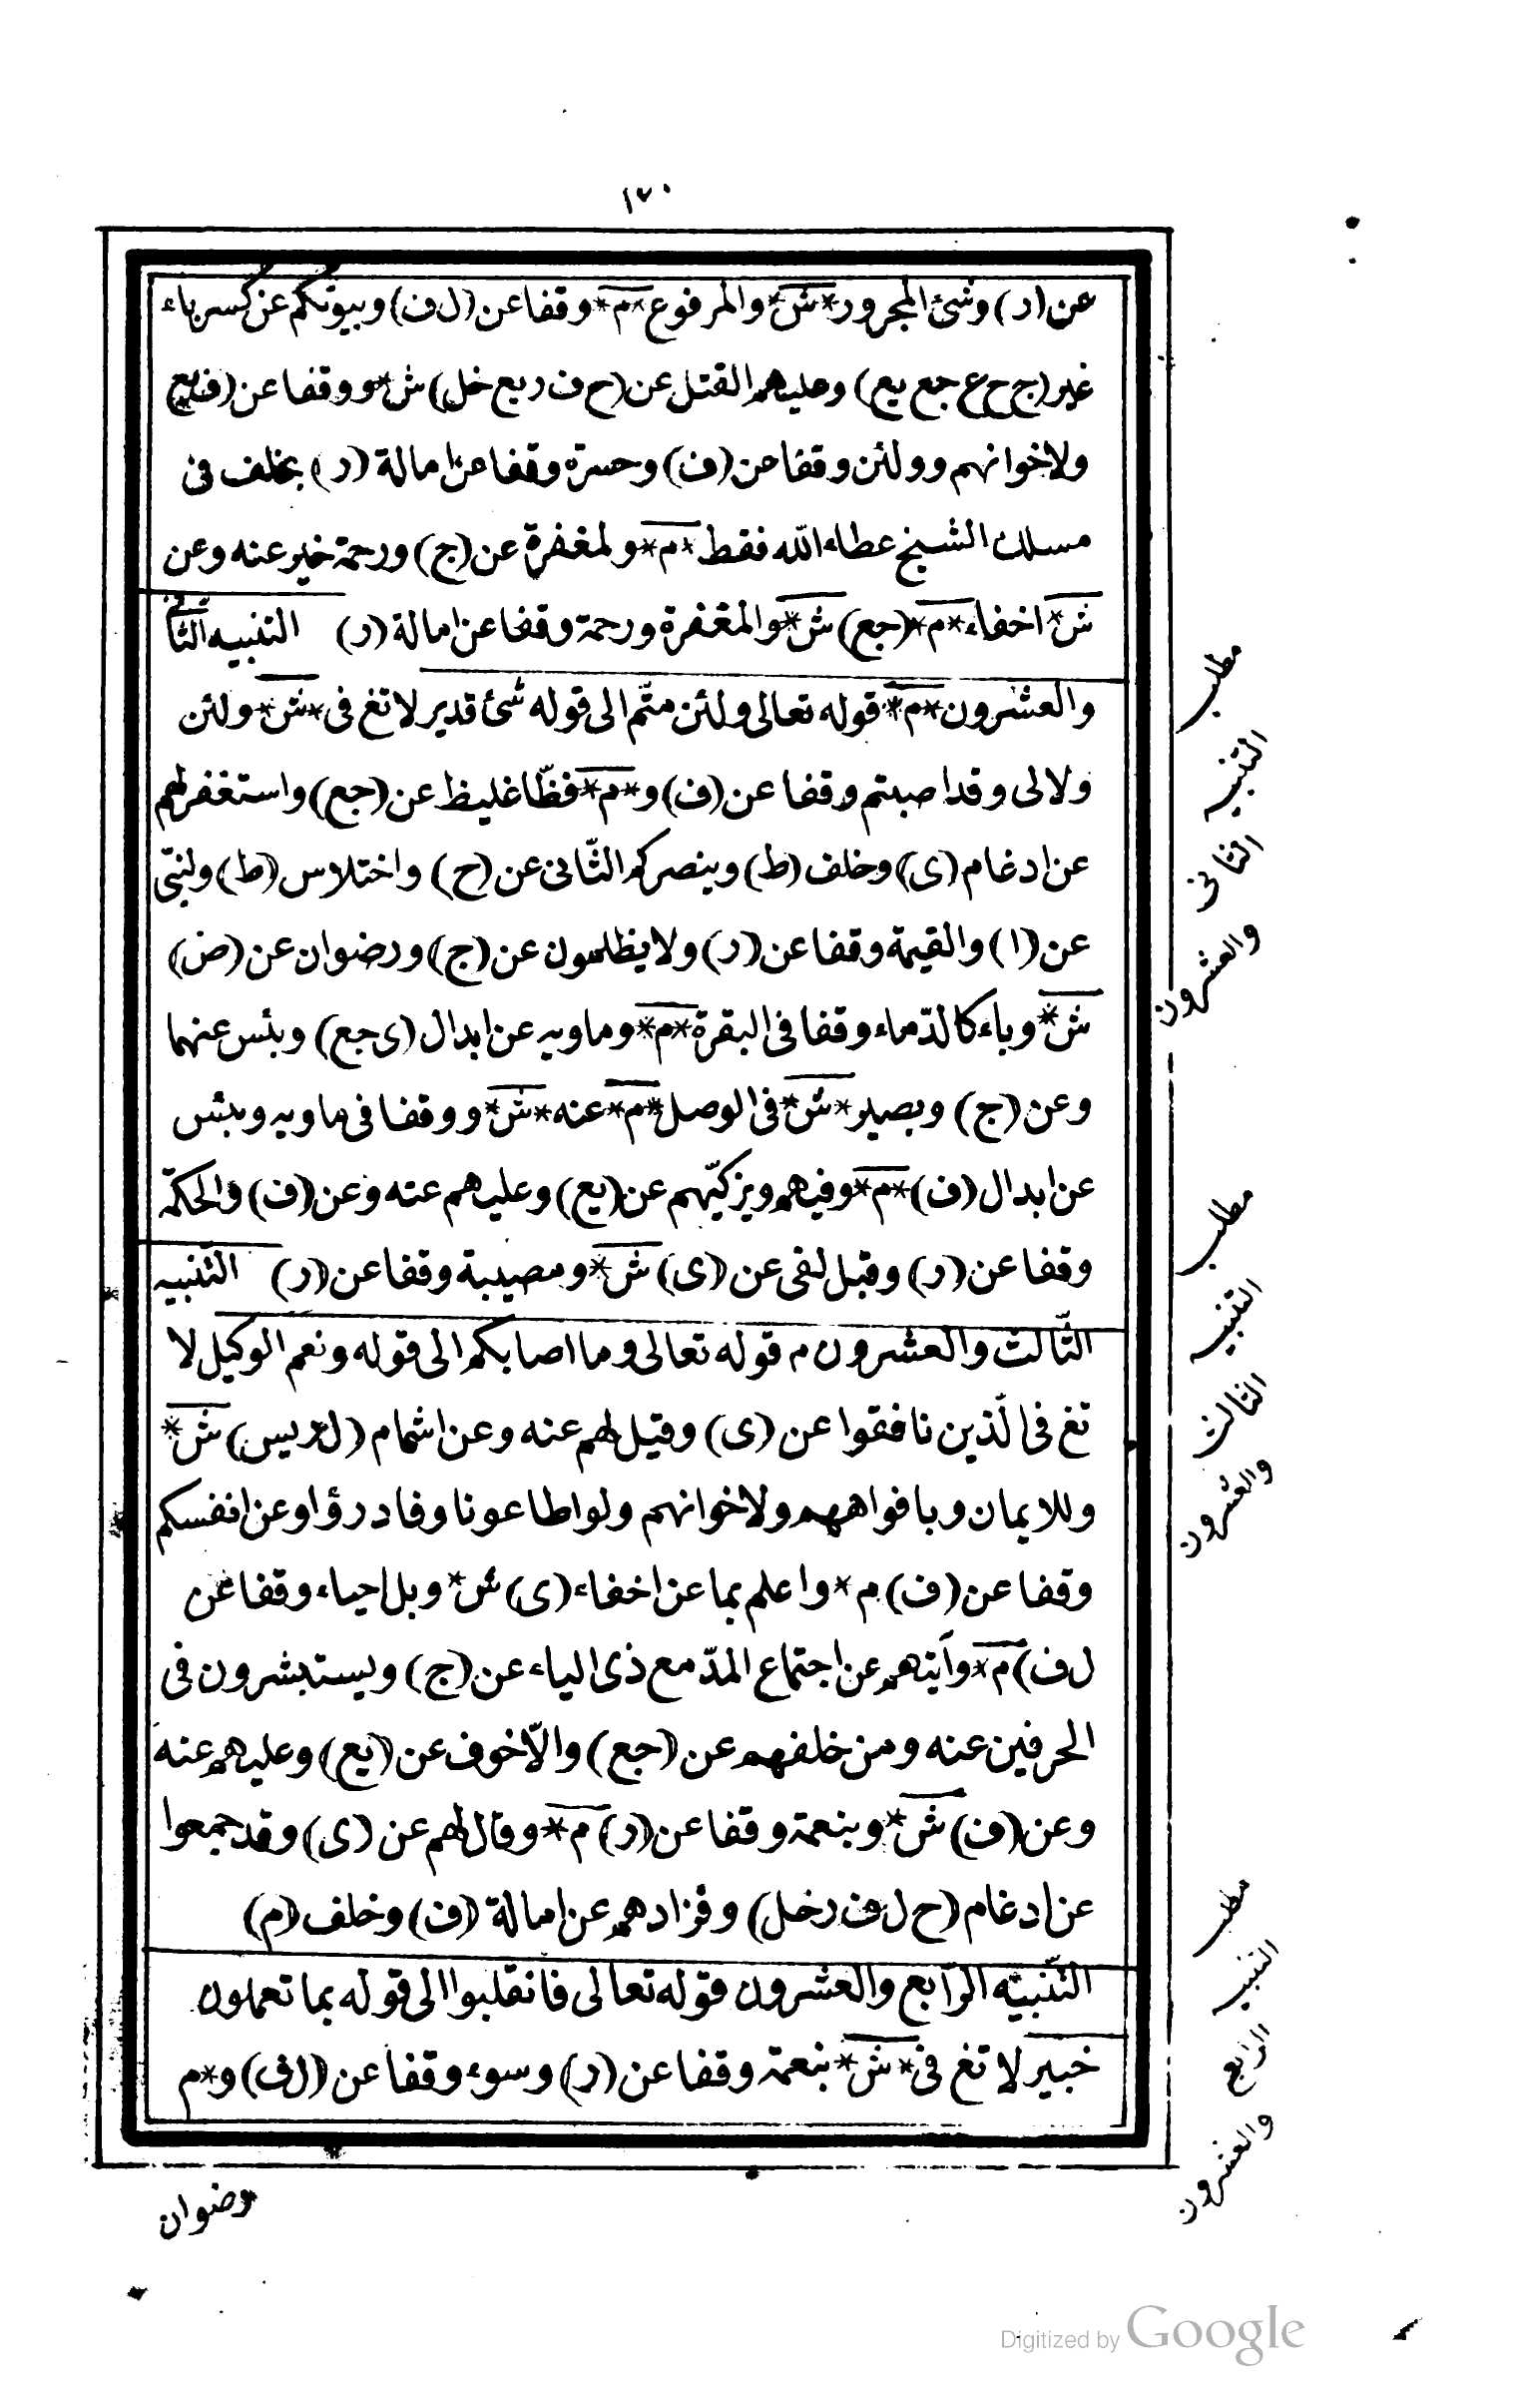 ١٧٠
عن (ر) وشئ المجرور * ش * والمرفوع * م * وقفا عن (ل ف) وبيوتكم عن كسر باء
غير (ج ح ع جع يع) وعليهم القتل عن (ح ف ر يع خل) ش * ووقفا عن (ف يع
ولاخوانهم وولئن وقفا عن (ف) وحسرة وقفا عن امالة (ر) بخلف فى
مسلك الشيخ عطاء الله فقط * م * ولمغفرة عن (ج) ورحمة خير عنه وعن
ش * اخفاء * م * (جع) ش * والمغفرة ورحمة وقفا عن امالة (ر) التنبيه الثانى
والعشرون * م * قوله تعالى ولئن متّم الى قوله شئ قدير لا تغ فى * ش * ولئن
ولالى وقد اصبتم وقفا عن (ف) و * م * فظّا غليظ عن (جع) واستغفر لهم
عن ادغام (ى) وخلف (ط) وينصركم الثّانى عن (ح) واختلاس (ط) ولنبّى
عن (ا) والقيمة وقفا عن (ر) ولا يظلمون عن (ج) ورضوان عن (ض)
ش * وباء كالدّماء وقفا فى البقرة * م * وماويه عن ابدال (ى جع) وبئس عنهما
وعن (ج) وبصير * ش * فى الوصل * م * عنه * ش * ووقفا فى ماويه وبئس
عن ابدال (ف) * م * وفيهم ويزكّيهم عن (يع) وعليهم عنه وعن (ف) والحكمة
وقفا عن (ر) وقبل لفى عن (ى) ش * ومصيبة وقفا عن (ر) التّنبيه
الثّالث والعشرون م قوله تعالى وما اصابكم الى قوله ونعم الوكيل لا
تغ فى الّذين نافقوا عن (ى) وقيل لهم عنه وعن اشمام (ل ر يس) ش *
وللايمان وبافواههم ولاخوانهم ولو اطاعونا وفادرؤا وعن انفسكم
وقفا عن (ف) م * واعلم بما عن اخفاء (ى) ش * وبل احياء وقفا عن
ل ف) م * وآتيهم عن اجتماع المدّ مع ذى الياء عن (ج) ويستبشرون فى
الحرفين عنه ومن خلفهم عن (جع) والّاخوف عن (يع) وعليهم عنه
وعن (ف) ش * وبنعمة وقفا عن (ر) م * وقال لهم عن (ى) وقد جمعوا
عن ادغام (ح ل ف ر خل) وفزادهم عن امالة (ف) وخلف (م)
التّنبيه الرّابع والعشرون قوله تعالى فانقلبوا الى قوله بما تعملون
خبير لا تغ فى * ش * بنعمة وقفا عن (ر) وسوء وقفا عن (ل ف) و * م
رضوان
مطلب
التنبيه
الثانى
والعشرون
مطلب
التنبيه
الثالث
والعشرون
مطلب
التنبيه
الرابع
والعشرون
Digitized by Google